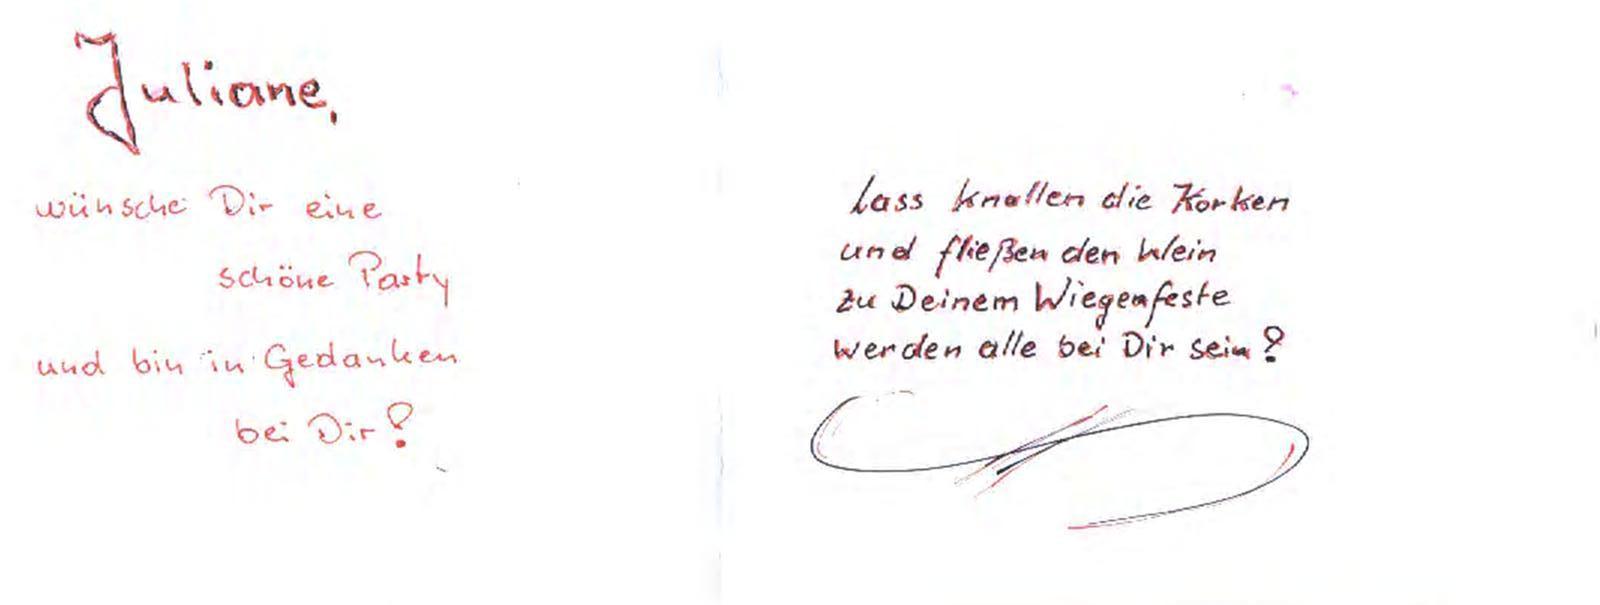 Juliane,
wünsche Dir eine
schöne Party
und bin in Gedanken
bei Dir!
Lass knallen die Korken
und fließen den Wein
zu Deinem Wiegenfeste
werden alle bei Dir sein!